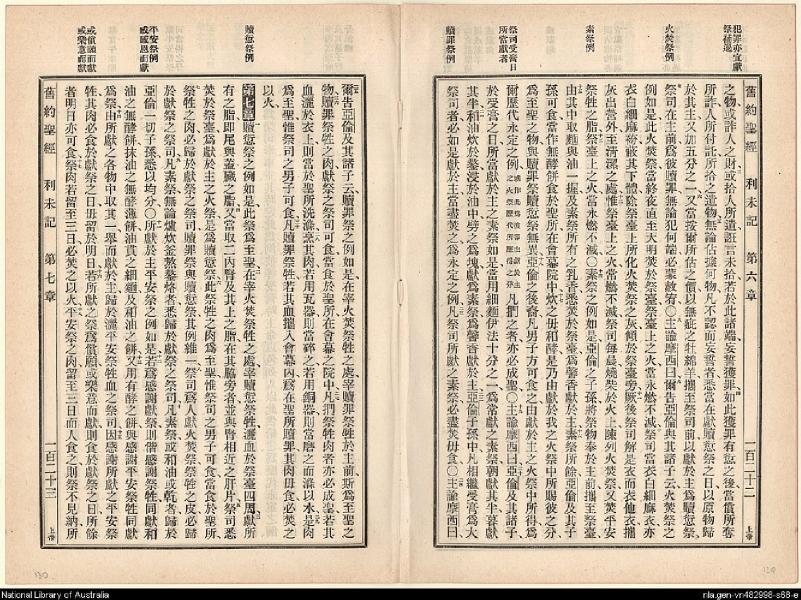 犯罪亦宜獻祭補過
火焚祭例
素祭例
祭司受膏日所當獻者
贖罪祭例
舊約聖經 利未記 第六章 一百二十二 上帝
之物或詐人之財或拾人所遺誑言未拾若於此諸端妄誓獲罪如此獲罪有愆之後當償所奪
所詐人所付託所拾之遺物無論佔據何物凡不認而妄誓者悉當在獻贖愆祭之日以原物歸
於其主又加五分之一又當按爾所估之價以無疵之牡綿羊攜至祭司前以獻於主為贖愆祭
祭司在主前為彼贖罪無論犯何過必蒙赦宥〇主諭摩西曰爾告亞倫與其諸子云火焚祭之
例如是此火焚祭當終夜直至天明焚於祭臺祭臺上之火當永燃不滅祭司當衣白細麻布衣亦
衣白細麻袴蔽其下體除祭臺上所化火焚祭之灰傾於祭臺旁厥後祭司解是衣而衣他衣攜
灰出營外至清潔之處惟祭臺上之火常燃不滅祭司每晨燒柴於火上陳列火焚祭又焚平安
祭牲之脂祭臺上之火當永燃不滅〇素祭之例如是亞倫之子孫將祭物奉於主前攜至祭臺
由其中取麵與油一握及素祭所有之乳香悉焚於祭臺為馨香獻於主素祭所餘亞倫及其子
孫可食當作無酵餅食於聖所在會幕院中炊之毋和酵是乃由獻於我之火祭中所賜彼之分
為至聖之物與贖罪祭贖愆祭無異亞倫之後裔凡男子方可食之由獻於主之火祭中所得為
爾歷代永定之例 凡捫之者亦必成聖〇主諭摩西曰亞倫及其諸子
於受膏之日所當獻於主之素祭如是當用細麵伊法十分之一為常獻之素祭朝獻其半暮獻
其半和油炊於鏊浸於油中劈之為塊獻為素祭為馨香獻於主亞倫子孫中凡相繼受膏為大
祭司者必如是獻於主當盡焚之為永定之例凡祭司所獻之素祭必盡焚毋食〇主諭摩西曰
贖愆祭例
平安祭例或感恩而獻
或償願而獻或樂意而獻
爾告亞倫及其諸子云贖罪祭之例如是在宰火焚祭牲之處宰贖罪祭牲於主前斯為至聖之
物獻贖罪祭牲之祭司可食當食於聖所在會幕之院中凡捫祭牲肉者亦必成聖若其
血灑於衣上則當於聖所洗滌烹其肉若用瓦器則當碎之若用銅器則當磨之而滌以水是肉
為至聖惟祭司之男子可食凡贖罪祭牲若其血攜入會幕內為在聖所贖罪其肉毋食必焚之
以火
第七章贖愆祭之例如是此祭為至聖在宰火焚祭牲之處宰贖愆祭牲灑血於祭臺四周獻所
有之脂即尾與蓋臟之脂又當取二內腎及其上之脂在氐脇旁者並與腎相近之肝片祭司悉
焚於祭臺為獻於主之火祭是為贖愆祭此祭牲之肉為至聖惟祭司之男子可食當食於聖所
祭牲之肉必歸於獻祭之祭司贖罪祭與贖愆祭其例維一祭司為人獻火焚祭祭牲之皮必歸
於獻祭之祭司凡素祭無論爐炊釜煎鏊烙者悉歸於獻祭之祭司凡素祭或和油或乾者歸於
亞倫一切子孫悉以均分〇所獻於主平安祭之例如是若為感謝獻祭則偕感謝祭牲同獻和
油之無酵餅抹油之無酵薄餅油浸之細麵及和油之餅又用有酵之餅與感謝平安祭牲同獻
為祭由所獻之各物中取其一舉而獻於主歸於灑平安祭牲血之祭司因感謝所獻之平安祭
牲其肉必食於獻祭之日毋留於明日若所獻之祭為償願或樂意而獻則食於獻祭之日所餘
者明日亦可食祭肉若留至三日必焚之以火平安祭之肉留至三日而人食之則祭不見納所
舊約聖經 利未記 第七章 一百二十三 上帝
130
129
National Library of Australia
nla.gen-vn482998-s68-e